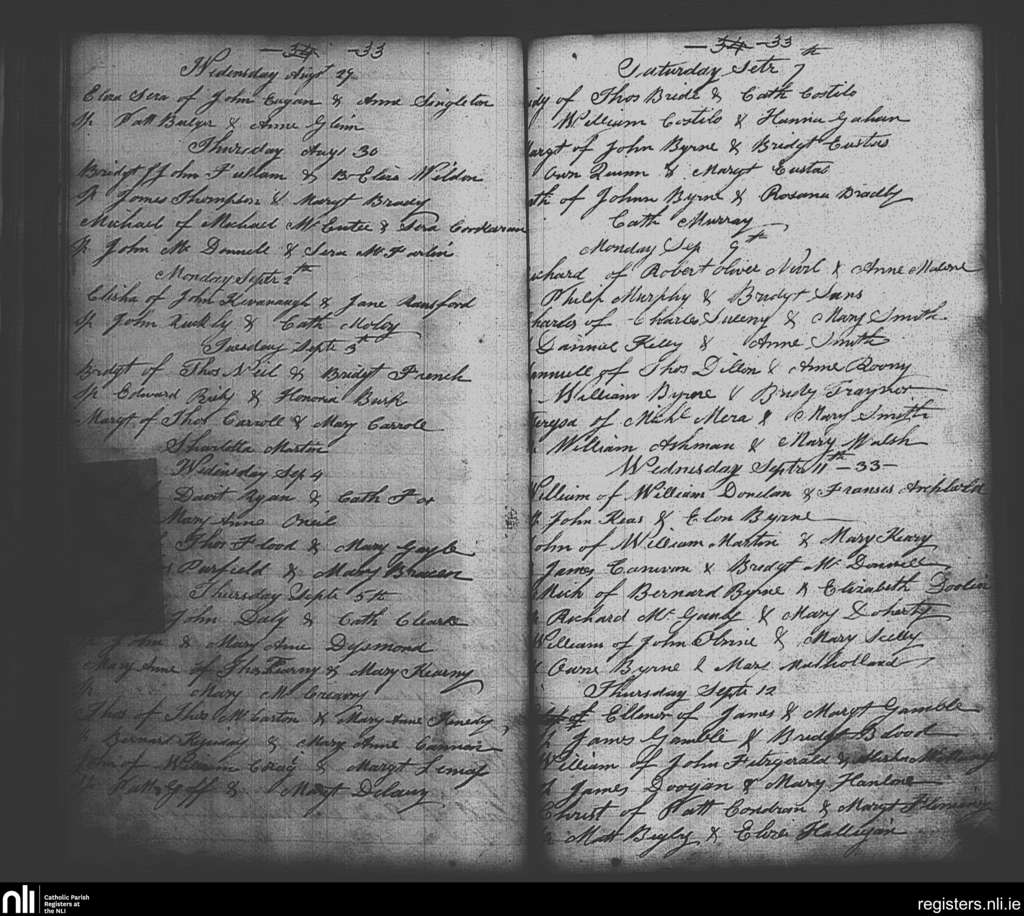 34 33
Wedensday Augst 29
Eliza Sera of John Eagan & Anne Singleton
Sp Patt Bulger & Anne Glinn
Thursday Augs 30
Bridgt of John Fullam & B Eliza Wildon
Sp James Thompson & Margt Brady
Michael of Michael McEntee & Sera Corkeran
Sp John Mc Donnell & Sera Mc Farlin
Monday Septr 2th
Elisha of John Kavanaugh & Jane Ransford
Sp John & Cath Moley
Tuesday Septr 3th
Bridgt of Thos Neil & Bridgt French
Sp Edward Rieley & Honora Burk
Margt of Thos Carroll & Mary Carrole
Sharlotta Martin
Wedensday Sep 4
Davit Ryan & Cath Fox
Mary Anne Oneil
Thos Flood & Mary Gayle
Parfield & Mary Bracen
Thursday Septr 5th
John Daly & Cath Clearke
John & Mary Anne Dysmond
Mary Anne of Thos Kearny & Mary Kearny
Sp Mary McCreavy
Thos of Thos McCarton & Mary Anne Kenedy
Bernard & Mary Anne Cannon
John of William Craig & Margt
Patt Goff & Margt Delany
34 33
Saturday Setr 7th
of Thos Bride & Cath Costilo
William Costilo & Hanna Gahan
Margt of John Byrne & Bridgt Eustas
Own Quinn & Margt Eustas
th of Johnn Byrne & Rosana Bradly
Cath Murray
Monday Sep 9th
ichard of Robert Oliver & Anne Malone
Philip Murphy & Bridgt
harles of Charles Sweeny & Mary Smith
Danniel Kiley & Anne Smith
of Thos Dillon & Anne Roony
William Byrne & Bridy Traynor
Teresa of Michl Mera & Mary Smith
William Ashman & Mary Walsh
Wednesday Septr 11th -33-
William of William Donelan & Franses Archbold
John Keas & Elon Byrne
John of William Martin & Mary Keary
James Canavan & Bridgt McDonnell
Rich of Bernard Byrne & Elizabeth Doolin
Richard Mc & Mary Doherty
William of John & Mary Seelly
Owne Byrne & Mary Mulholland
Thursday Septr 12
Ellenor of James & Margt Gamble
James Gamble & Bridgt Blood
William of John Fitzgerald &
James Doogan & Mary Hanlone
Christ of Patt Condron & Margt Flemang
Matt Bigly & Eliza Halligan
nli
Catholic Parish
Registers at
the NLI
registers.nli.ie